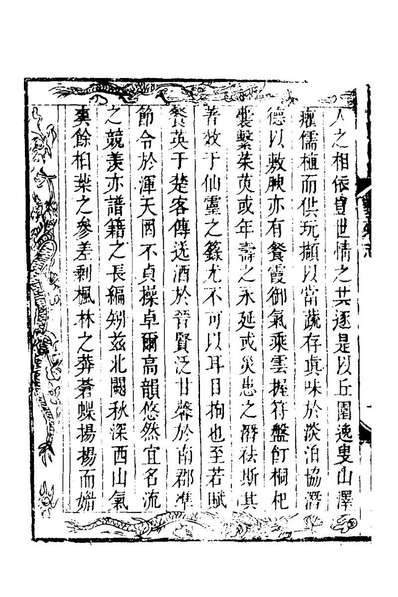 人之相依豈世情之共逐是以丘園逸叟山澤
癯儒植而供玩擷以當蔬存真味於淡泊協潛
德以敷腴亦有餐霞御氣乘雲握符盤飣桐杞
囊繫茱萸或年壽之永延或災患之潛祛斯其
著效于仙靈之籙尤不可以耳目拘也至若賦
餐英于楚客傳送酒於晉賢泛甘馨於南郡準
節令於渾天固不貞操卓爾高韻悠然宜名流
之競羡亦譜籍之長編矧茲北闕秋深西山氣
爽餘柏葉之參差剩楓林之莽蒼蝶揚揚而嬉